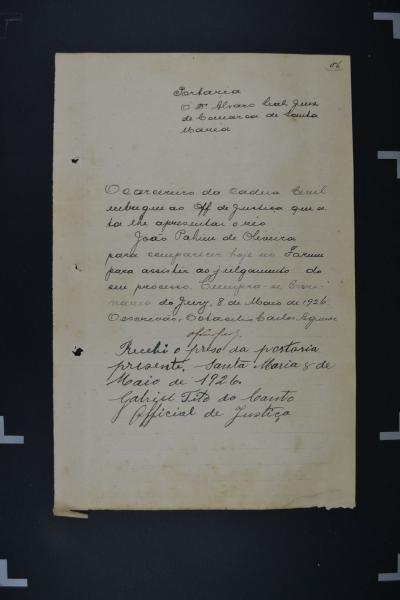 86
Portaria
O Dr Alvaro Leal Juiz
de Comarca de Santa
Maria
O carcereiro da Cadeia Civil
entregue ao Off de Justiça que es
ta lhe apresentar o réo
João de Oliveira
para comparecer hoje no Forum
para assistir ao julgamento do
seu processo. Cumpra-se
do Jury, 8 de Maio de 1926
O escrivão, Carlos
Recebi o preso da portaria
presente, Santa Maria 8 de
Maio de 1926.
Gabriel Tito do Canto
Official de Justiça